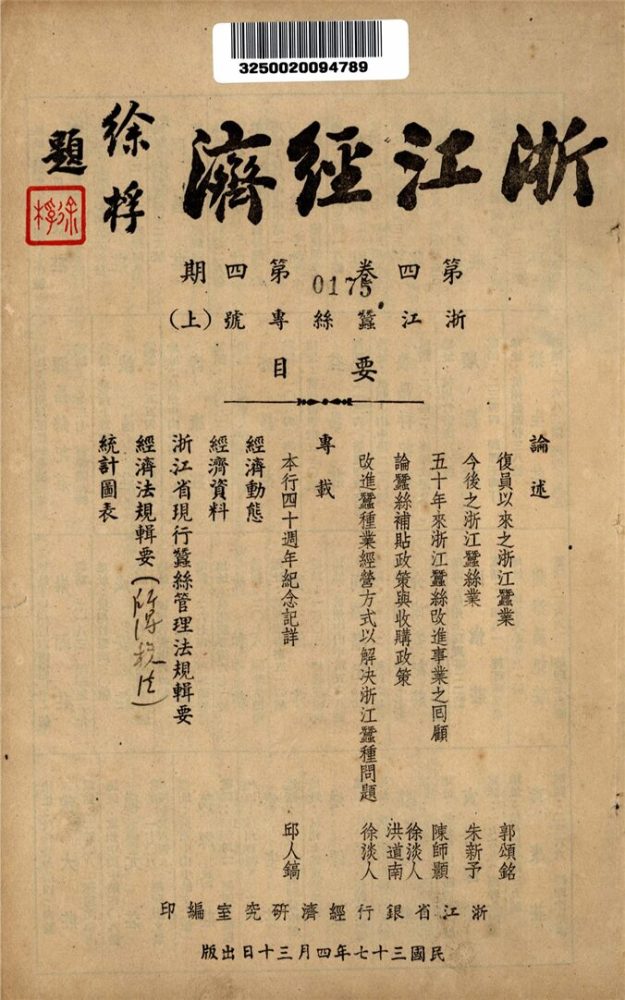 3250020094789
浙江經濟
徐桴題
徐桴
第四卷 第四期
0175
浙江蠶絲專號(上)
要目
論述
復員以來之浙江蠶業 郭頌銘
今後之浙江蠶絲業 朱新予
五十年來浙江蠶絲改進事業之回顧 陳師顥
論蠶絲補貼政策與收購政策 徐淡人 洪道南
改進蠶種業經營方式以解決浙江蠶種問題 徐淡人
專載
本行四十週年紀念記詳 邱人鎬
經濟動態
經濟資料
浙江省現行蠶絲管理法規輯要
經濟法規輯要(所得稅法)
統計圖表
浙江省銀行經濟研究室編印
民國三十七年四月三十日出版